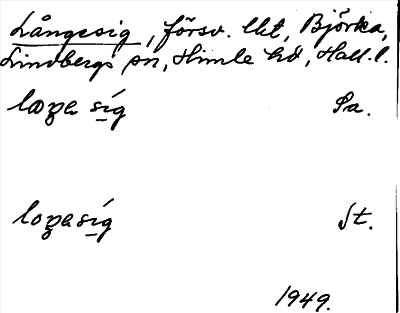 Långesig, försv. lht, Björka,
Lindbergs sn, Himle hd, Hall. l.
laꝫa síg Pa.
loꝫasíg St.
1949.